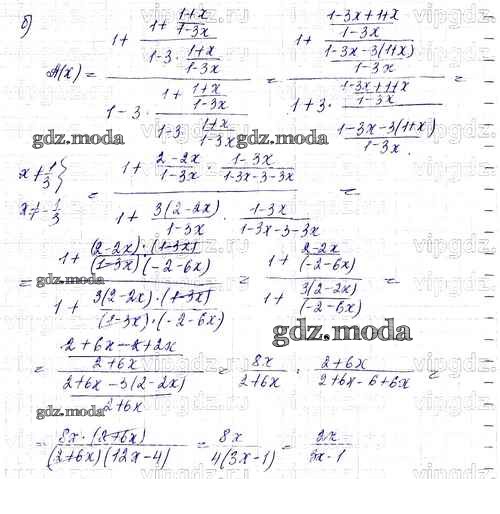 б)
A(x) = (1 + (1 + (1+x)/(1-3x))/(1-3·(1+x)/(1-3x)))/(1-3·(1 + (1+x)/(1-3x))/(1-3·(1+x)/(1-3x))) = (1 + ((1-3x+1+x)/(1-3x))/((1-3x-3(1+x))/(1-3x)))/(1+3·((1-3x+1+x)/(1-3x))/((1-3x-3(1+x))/(1-3x))) =
gdz.moda
x≠1/3 }
x≠-1/3
= (1 + (2-2x)/(1-3x) · (1-3x)/(1-3x-3-3x))/(1 + 3(2-2x)/(1-3x) · (1-3x)/(1-3x-3-3x)) =
= (1 + (2-2x)·(1-3x)/((1-3x)(-2-6x)))/(1 + 3(2-2x)·(1-3x)/((1-3x)·(-2-6x))) = (1 + (2-2x)/(-2-6x))/(1 + 3(2-2x)/(-2-6x)) =
gdz.moda
gdz.moda
= ((2+6x-2+2x)/(2+6x))/((2+6x-3(2-2x))/(2+6x)) = 8x/(2+6x) · (2+6x)/(2+6x-6+6x) =
gdz.moda
= 8x·(2+6x)/((2+6x)(12x-4)) = 8x/(4(3x-1)) = 2x/(3x-1)
vipgdz